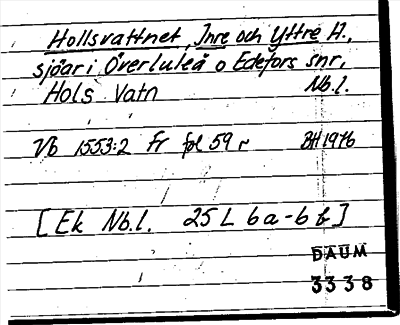 Hollsvattnet, Inre och Yttre H.,
sjöar i Överluleå o Edefors snr,
Hols Vatn Nb.l.
Vb 1553:2 Fr fol 59 r BH 1976
[Ek Nb.l. 25 L 6a-6b]
DAUM
3338